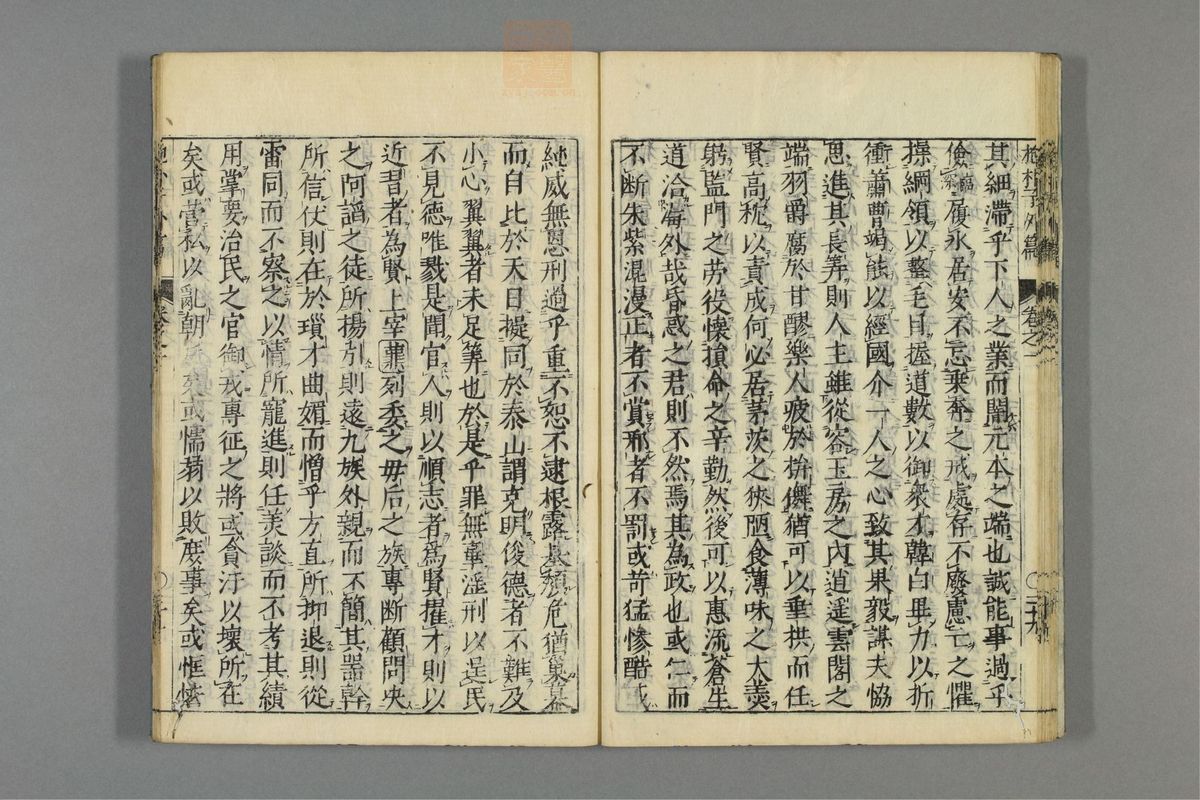 抱朴子外篇 卷之一 ○二十九
其細滯乎下人之業而闇元本之端也誠能事過乎
儉臨深履氷居安不忘乘奔之戒處存不廢慮亡之懼
操綱領以整毛目握道數以御衆才韓白畢力以折
衝蕭曹竭能以經國介一人之心致其果毅謀夫協
思進其長筭則人主雖從容玉房之内逍遥雲閣之
端羽爵腐於甘醪樂人疲於拚儛猶可以垂拱而任
賢高枕以責成何必居茅茨之狹陋食薄味之大羹
躬監門之劳役懷損命之辛勤然後可以惠流蒼生
道洽海外哉昏惑之君則不然焉其為政也或仁而
不断朱紫混漫正者不賞邪者不罰或苛猛惨酷或
純威無恩刑過乎重不恕不逮根露基頽危猶巢幕
而自比於天日擬同於泰山謂克明俊德者不難及
小心翼翼者未足筭也於是乎罪無辜淫刑以逞民
不見德唯戮是聞官人則以順志者為賢擢才則以
近習者為賢上宰鼎列委之毋后之族專断顧問决
之阿謟之徒所揚引則遠九族外親而不簡其器幹
所信仗則在於瑣才曲媚而憎乎方直所抑退則從
雷同而不察之以情所寵進則任美談而不考其績
用掌要治民之官御戎專征之將或貪汙以壞所在
矣或營私以亂朝矣或懦弱以敗庶事矣或恇怯